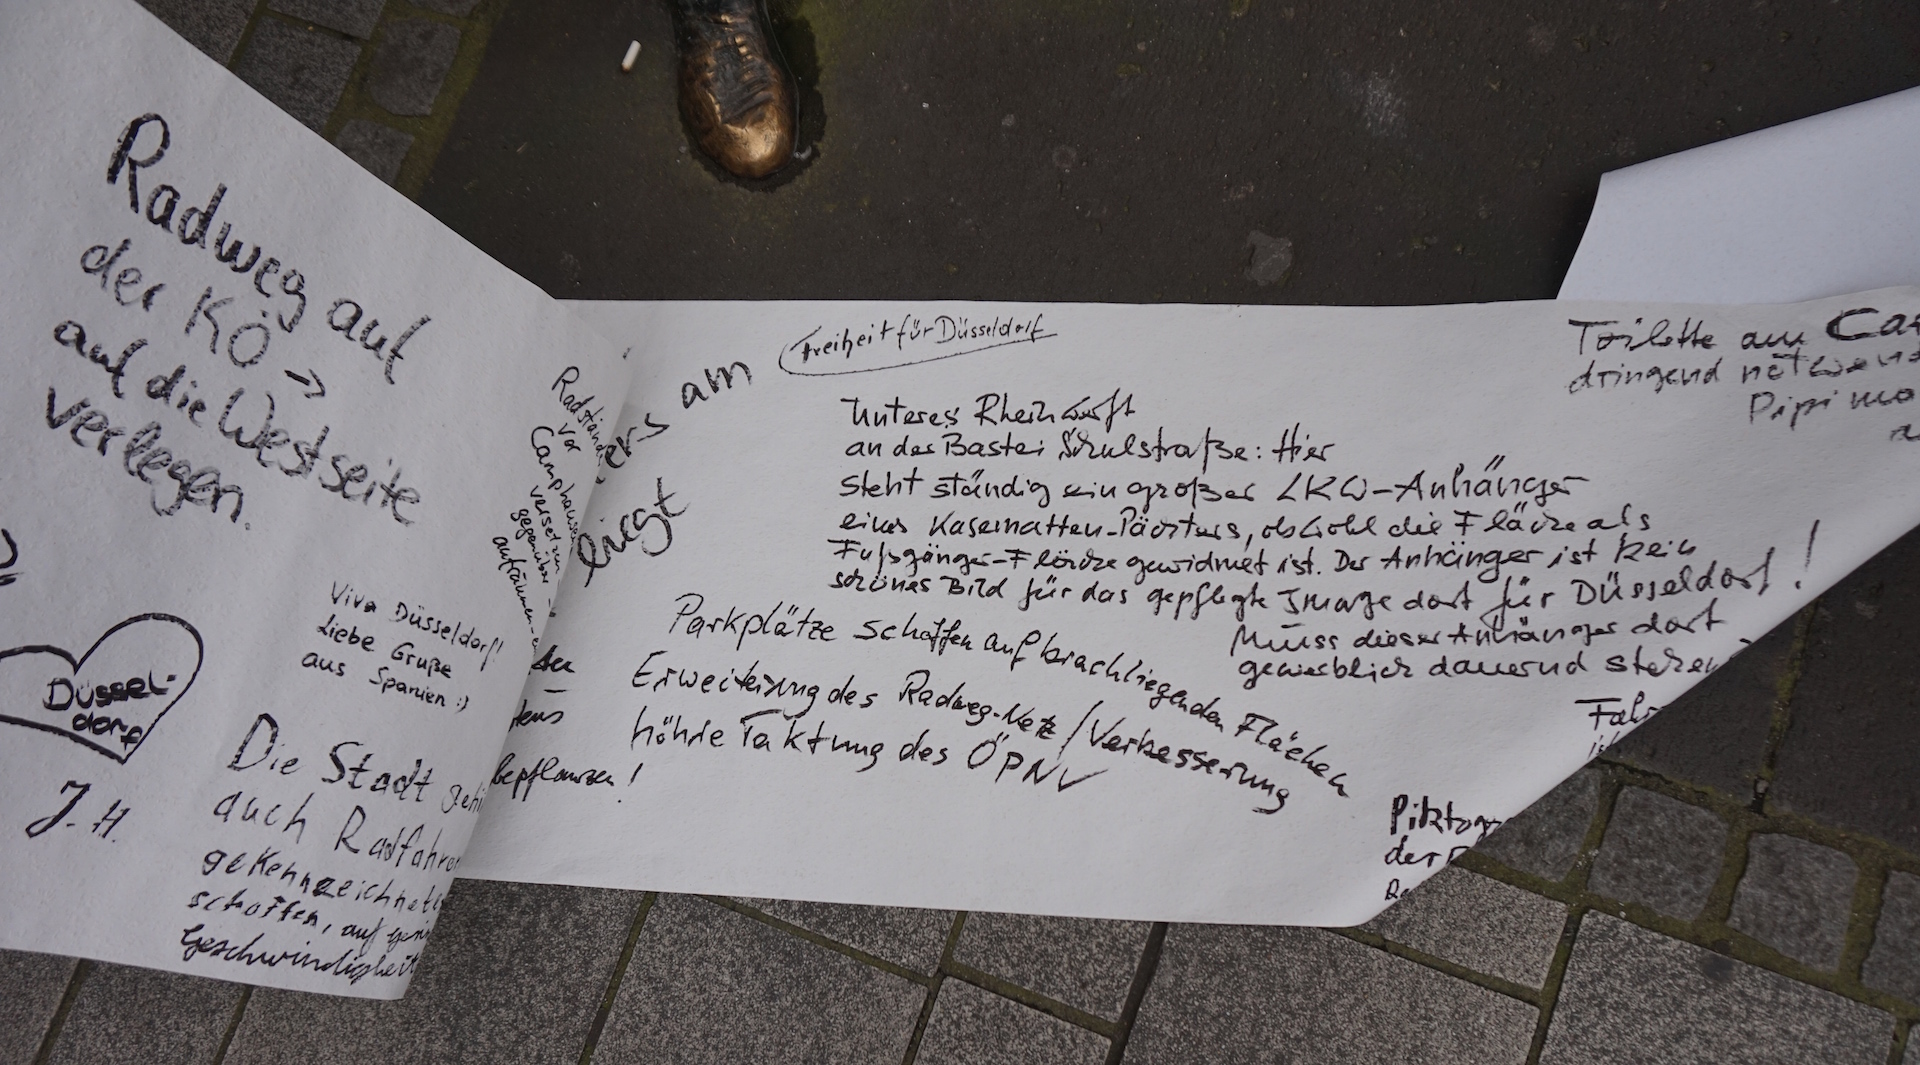 Radweg auf
der KÖ →
auf die Westseite
verlegen.
Viva Düsseldorf!
Liebe Gruße
aus Spanien :)
Düssel-
dorf
J. H.
Die Stadt
auch Radfahr
gekennzeichnete
schaffen, auf
Geschwindigkeit
Radständer
vor
Camphausen
versetzen
gegenüber
aufräumen
am
liegt
bepflanzen!
Freiheit für Düsseldorf
Unteres Rheinwerft
an der Bastei Schulstraße: Hier
steht ständig ein großer LKW-Anhänger
eines Kasematten-Pächters, obwohl die Fläche als
Fußgänger-Fläche gewidmet ist. Der Anhänger ist kein
schönes Bild für das gepflegte Image dort für Düsseldorf!
Muss dieser Anhänger dort
gewerblich dauernd stehen
Parkplätze schaffen auf brachliegenden Flächen
Erweiterung des Radweg-Netz / Verbesserung
höhre Taktung des ÖPNV
Toilette am
dringend
Pipi
der